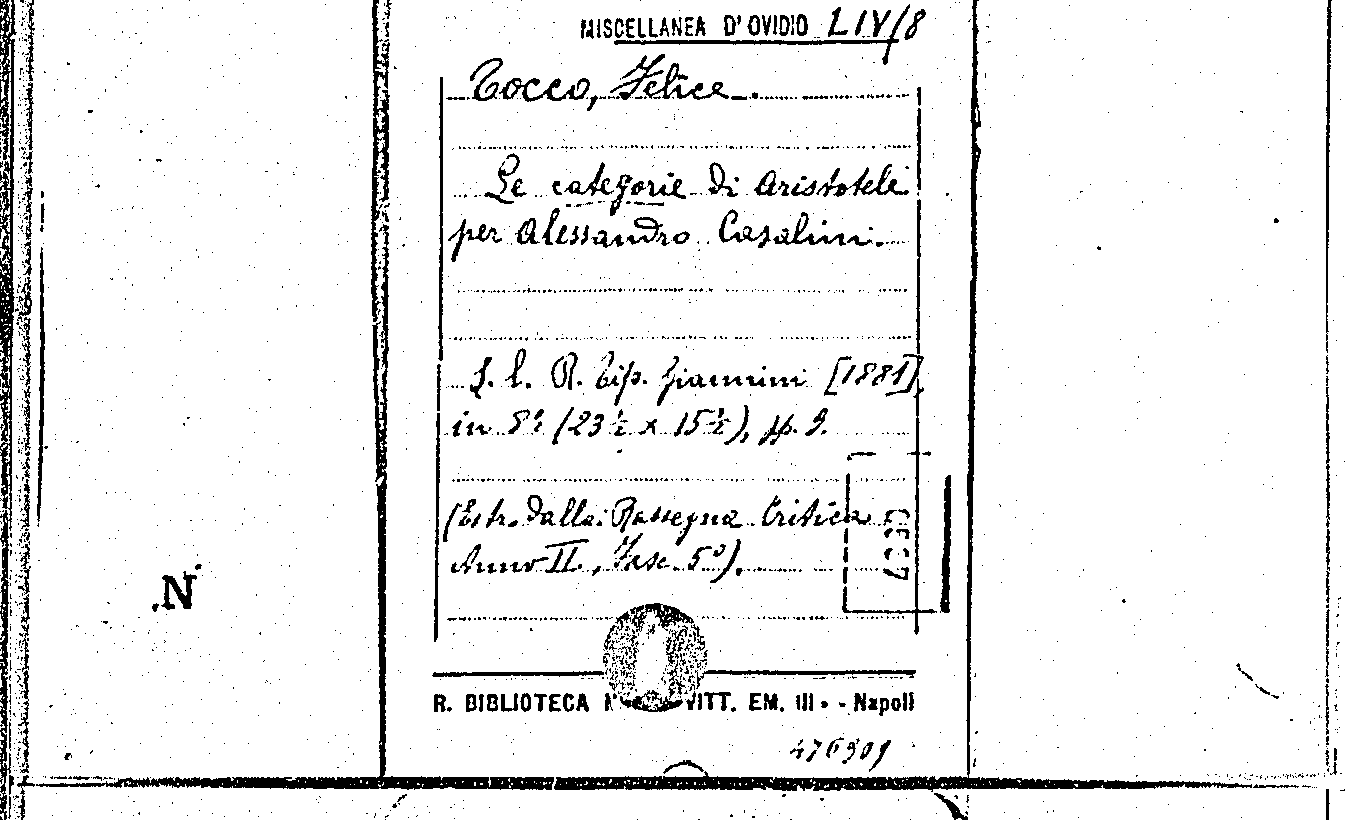 MISCELLANEA D'OVIDIO LIV/8
Tocco, Felice.
Le categorie di Aristotele
per Alessandro Casalini.
S. l. R. Tip. Giannini [1881],
in 8º (23 ½ x 15 ½), pp. 9.
(Estr. dalla: Rassegna Critica
Anno II., Fasc. 5º).
.N
R. BIBLIOTECA VITT. EM. III - Napoli
476909